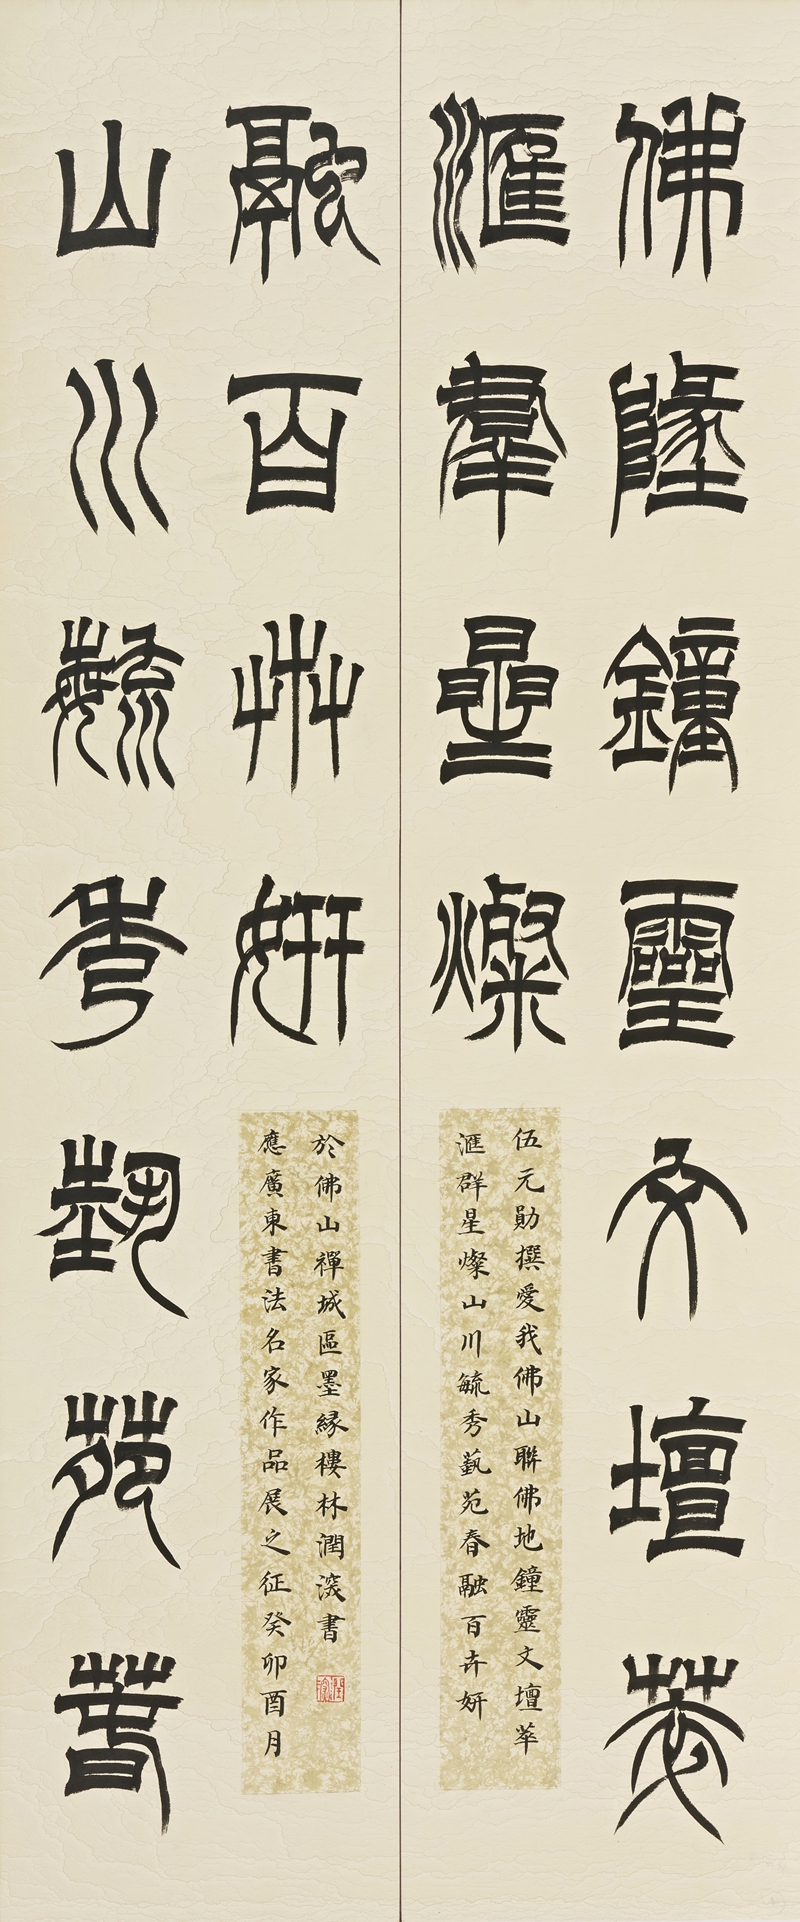 佛地鐘靈文壇萃
滙群星燦
伍元勛撰愛我佛山聯佛地鐘靈文壇萃
滙群星燦山川毓秀藝苑春融百卉妍
融百卉妍
山川毓秀藝苑春
於佛山禪城區墨緣樓林潤滾書
應廣東書法名家作品展之征癸卯酉月